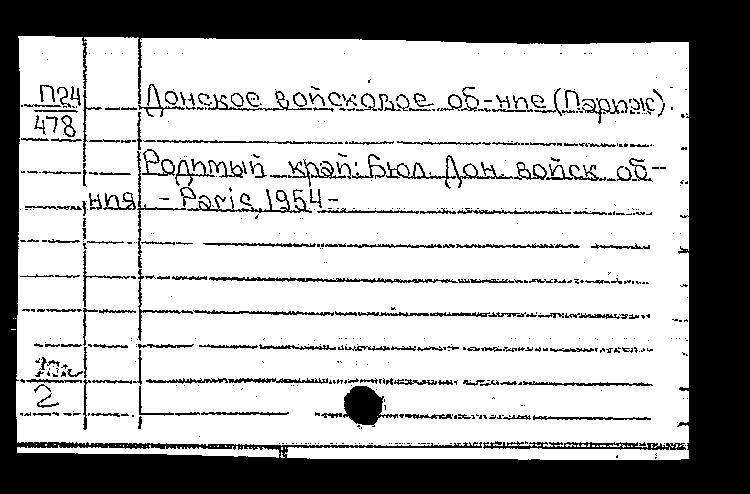 П24
478
Донское войсковое об-ние (Париж).
Родимый край: Бюл. Дон. войск об-
ния. - Paris, 1954-
2